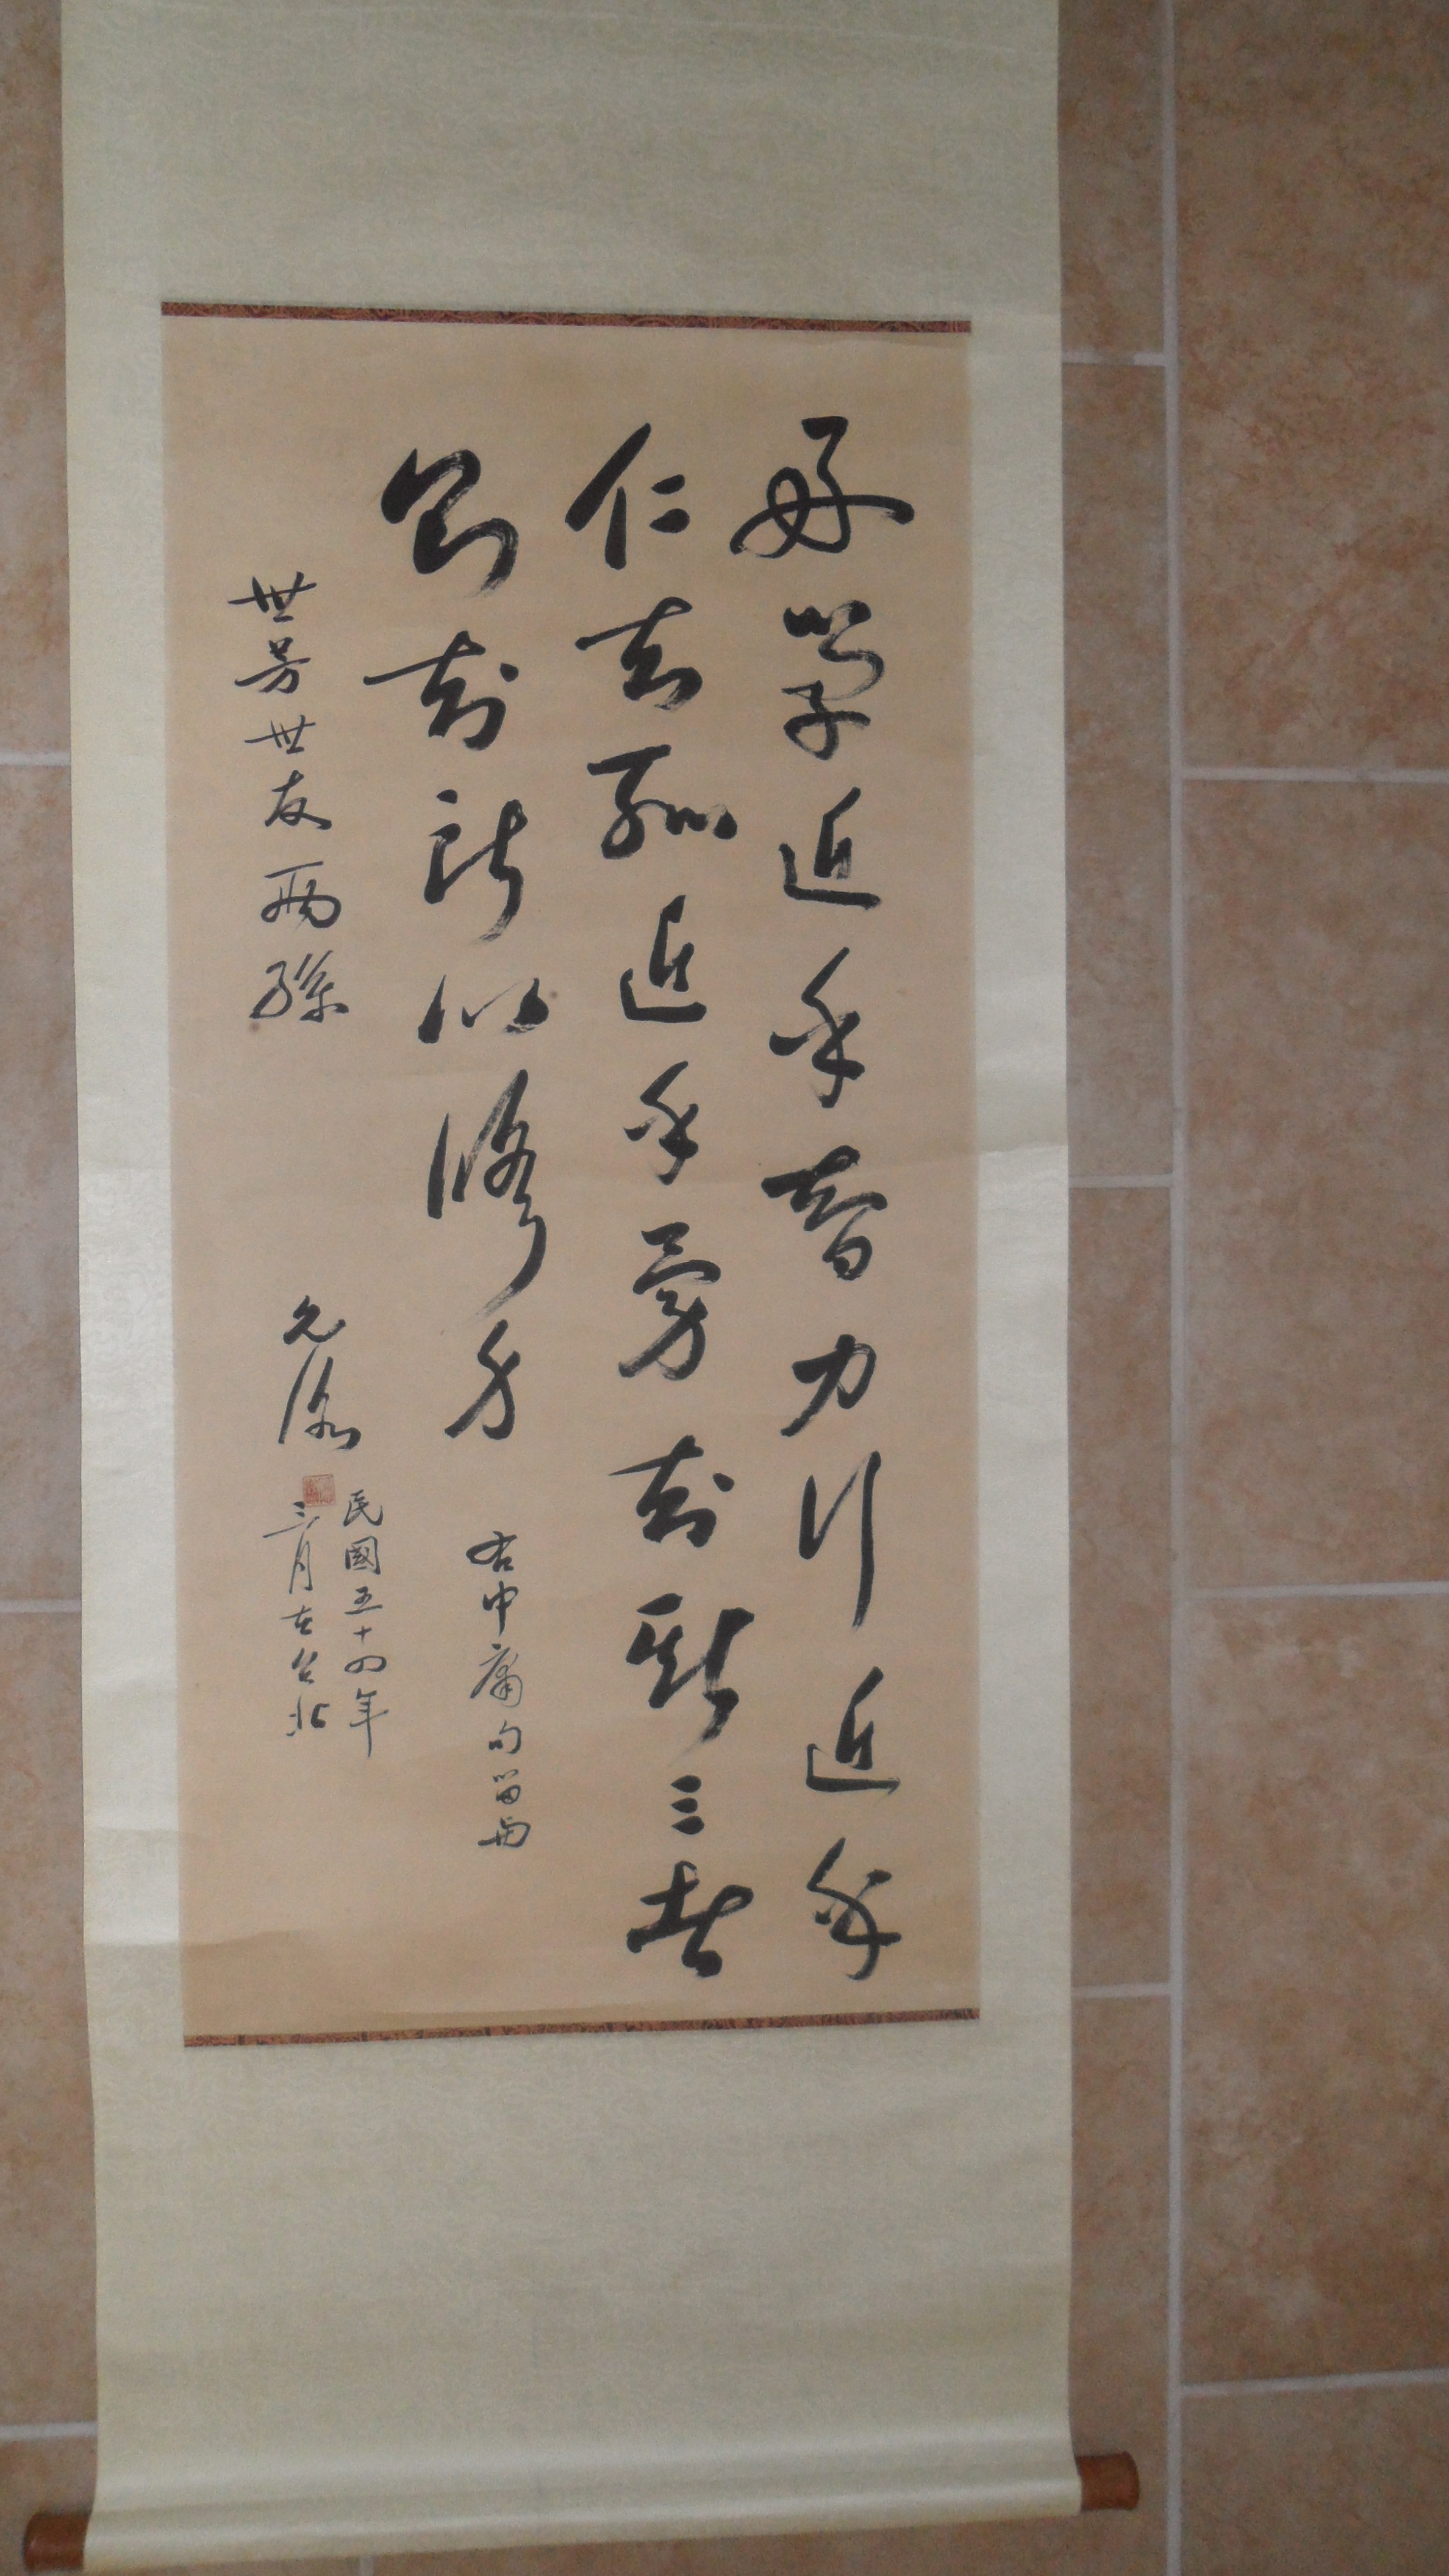 好學近乎智力行近乎
仁知恥近乎勇知斯三者
則知所以修身
右中庸句留兩
世芳世友兩孫
民國五十四年
三月在台北